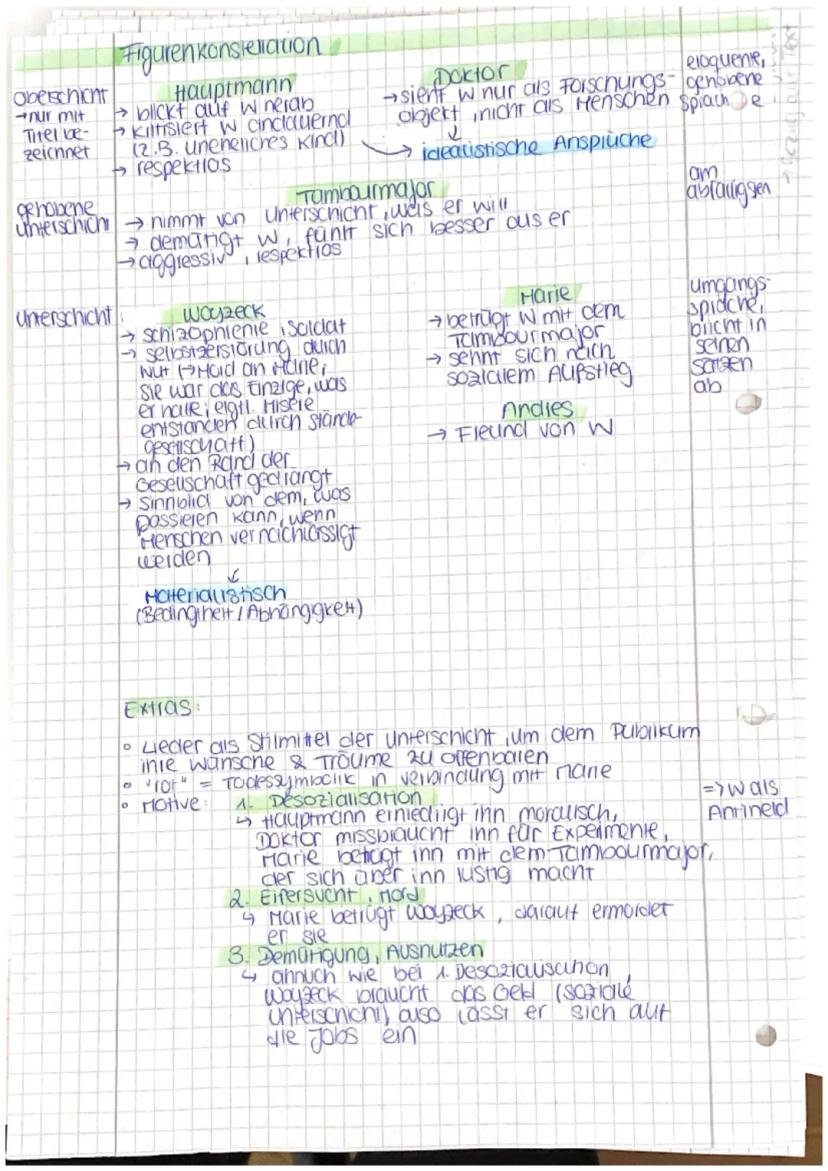 Figurenkonstellation
Oberschicht
→ nur mit
Titel be-
zeichnet
Hauptmann
→ blickt auf W herab
→ kritisiert W andauernd
(z.B. uneheliches Kind)
→ respektlos
Doktor
→ sieht W nur als Forschungs-
objekt, nicht als Menschen
↓
→ idealistische Ansprüche
eloquente,
gehobene
Sprache
gehobene
Unterschicht
Tambourmajor
→ nimmt von Unterschicht, was er will
→ demütigt W, fühlt sich besser aus er
→ aggressiv, respektlos
am
abfälligsten
Unterschicht:
Woyzeck
→ Schizophrenie, Soldat
→ Selbstzerstörung durch
Wut (→ Mord an Marie,
sie war das Einzige, was
er hatte; eigtl. Misere
entstanden durch Stände-
gesellschaft)
→ an den Rand der
Gesellschaft gedrängt
→ Sinnbild von dem, was
passieren kann, wenn
Menschen vernachlässigt
werden
↓
Materialistisch
(Bedingtheit / Abhängigkeit)
Marie
→ betrügt W mit dem
Tambourmajor
→ sehnt sich nach
sozialem Aufstieg
Andres
→ Freund von W
umgangs-
sprache,
bricht in
seinen
Sätzen
ab
Extras:
• Lieder als Stilmittel der Unterschicht, um dem Publikum
ihre Wünsche & Träume zu offenbaren
• "rot" = Todessymbolik in Verbindung mit Marie
• Motive: 1. Desozialisation
↳ Hauptmann erniedrigt ihn moralisch,
Doktor missbraucht ihn für Experimente,
Marie betrügt ihn mit dem Tambourmajor,
der sich über ihn lustig macht
=> W als
Antiheld
2. Eifersucht, Mord
↳ Marie betrügt Woyzeck, darauf ermordet
er sie
3. Demütigung, Ausnutzen
↳ ähnlich wie bei 1. Desozialisation,
Woyzeck braucht das Geld (soziale
Unterschicht), also lässt er sich auf
die Jobs ein